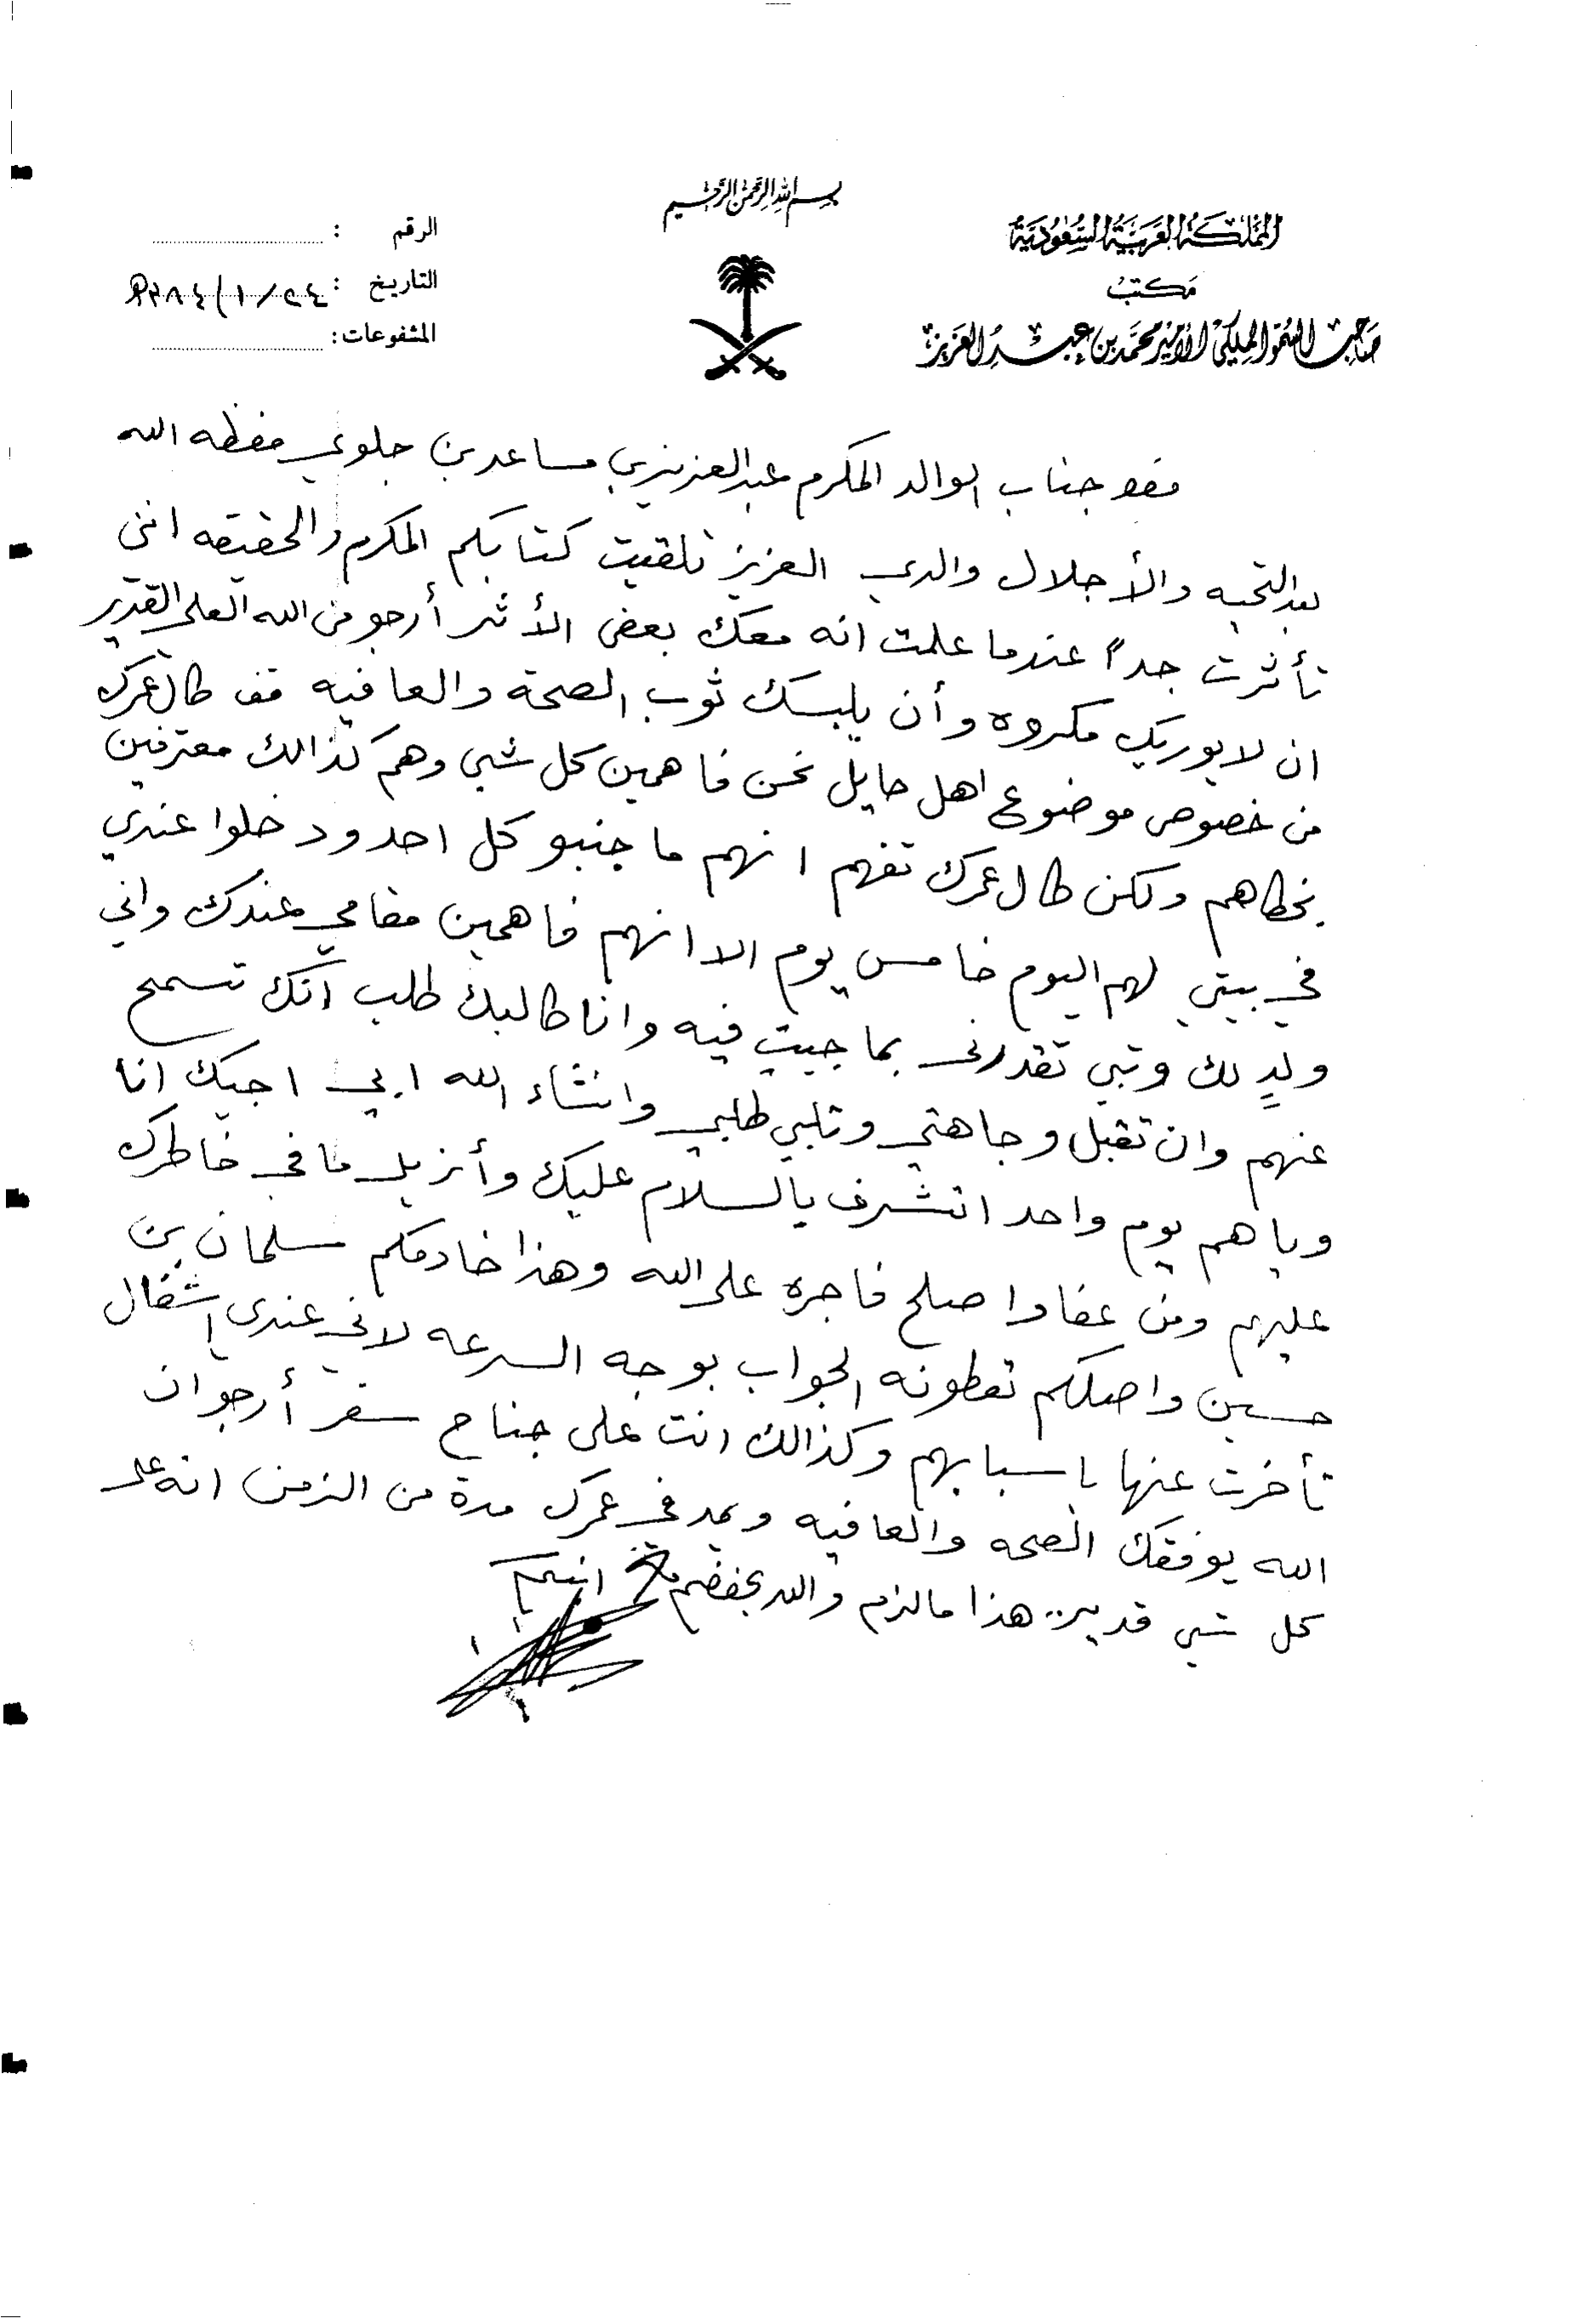 بسم الله الرحمن الرحيم
المملكة العربية السعودية
مكتب
صاحب السمو الملكي الأمير محمد بن عبد العزيز
الرقم :
التاريخ : ٢٤/١/١٣٨٤هـ
المشفوعات :
جناب الوالد المكرم عبدالعزيز بن مساعد بن جلوي حفظه الله
بعد التحيه والأجلال والدي العزيز تلقيت كتابكم المكرم والحقيقه انني
تأثرت جداً عندما علمت انه معك بعض الأثر أرجو من الله العلي القدير
ان لا يوريك مكروه وأن يلبسك ثوب الصحة والعافيه طال عمرك
من خصوص موضوع اهل حايل نحن فاهمين كل شي وهم كذالك معترفين
بخطاهم ولكن طال عمرك تفهم انهم ما جنبو كل احد ودخلوا عندي
في بيتي لهم اليوم خامس يوم الا انهم فاهمين مقامي عندك واني
ولدٍ لك وتبي تقدرني بما جيت فيه وانا طالبك طلب انك تسمح
عنهم وان تقبل وجاهتي وتلبي طلبي وانشاء الله ابي اجيك انا
وياهم يوم واحد اتشرف بالسلام عليك وأزيل ما في خاطرك
عليهم ومن عفا واصلح فاجره على الله وهذا خادمكم سلمان بن
حسين واصلكم تعطونه الجواب بوجه السرعه لاني عندي اشغال
تأخرت عنها باسبابهم وكذالك انت على جناح سفر أرجو ان
الله يوفقك الصحه والعافيه ويمد في عمرك مدة من الزمن انه على
كل شي قدير.. هذا ما لزم والله يحفضكم ابنكم